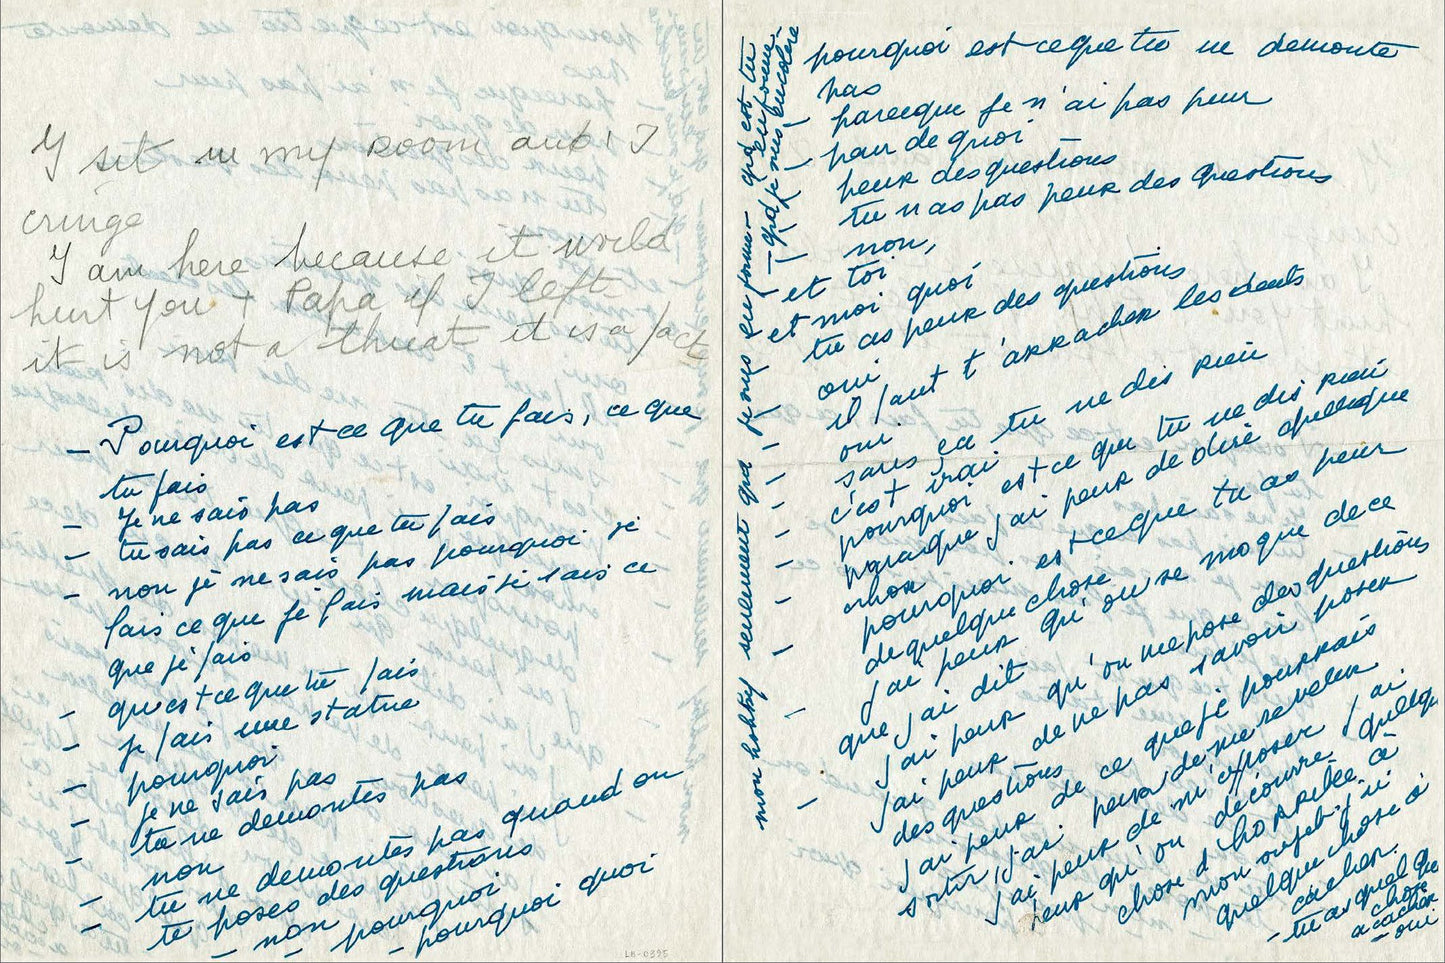 I sit in my room and I
cringe
I am here because it would
hurt you + Papa if I left
it is not a threat it is a fact
- Pourquoi est ce que tu fais, ce que
tu fais
- Je ne sais pas
- tu sais pas ce que tu fais
- non je ne sais pas pourquoi je
fais ce que je fais mais je sais ce
que je fais
- qu'est ce que tu fais
- je fais une statue
- pourquoi
- je ne sais pas
- tu ne demontes pas
- non
- tu ne demontes pas quand on
te poses des questions
- non - pourquoi
- pourquoi quoi
LB-0395
pourquoi est ce que tu ne demonte
pas
- parceque je n'ai pas peur
- peur de quoi
- peur des questions
- tu n as pas peur des questions
- non,
- et toi
- et moi quoi
- tu as peur des questions
- oui
- il faut t'arracher les dents
- oui
- sans ça tu ne dis rien
- c'est vrai
- pourquoi est ce que tu ne dis rien
- parceque j'ai peur de dire quelque
chose
- pourquoi est ce que tu as peur
de quelque chose
- j'ai peur qu'on se moque de ce
que j'ai dit
j'ai peur qu'on me pose des questions
j'ai peur de ne pas savoir poser
des questions
j'ai peur de ce que je pourrais
sortir, j'ai peur de me reveler
j'ai peur de m'exposer j'ai
peur qu'on decouvre quelq
chose d'horrible à
mon sujet j'ai
quelque chose à
cacher.
- tu as quel que
chose
a cacher
- oui
mon hobby seulement qd je suis en forme - qd est tu
en forme -
- qd je suis en colere